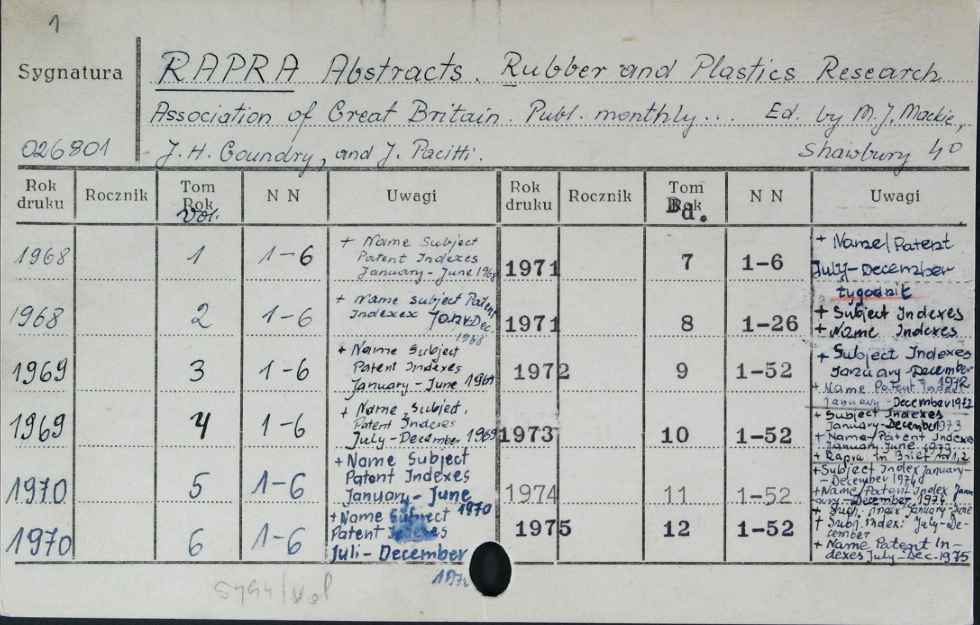 1
Sygnatura
RAPRA Abstracts. Rubber and Plastics Research
Association of Great Britain. Publ. monthly... Ed. by M. J. Mackie,
026801
J. H. Goundry, and J. Pacitti. Shawbury 40
Rok druku Rocznik Tom Rok Vol. N N Uwagi Rok druku Rocznik Tom Rok Bd. N N Uwagi
1968 1 1-6 + Name Subject
Patent Indexes
January-June 1968
1968 2 1-6 + Name Subject Patent
Indexex Dec.
1968
1969 3 1-6 + Name Subject
Patent Indexes
January-June 1969
1969 4 1-6 + Name, Subject,
Patent Indexes
July-December 1969
1970 5 1-6 + Name Subject
Patent Indexes
January-June
1970
1970 6 1-6 + Name Subject
Patent Indexes
Juli-December
1971 7 1-6 + Name/Patent
July-December
tygodnik
1971 8 1-26 + Subject Indexes
+ Name Indexes
1972 9 1-52 + Subject Indexes
January-December
1972
+ Name Patent
January-December 1972
1973 10 1-52 + Subject Indexes
January-December 1973
+ Name/Patent Indexes
January-June 1973
+ Rapra in Brief nr 1,2
1974 11 1-52 + Subject Index January-
-December 1974
+ Name/Patent Index
-December 1974
+ Subj. Index January-June
1975 12 1-52 + Subj. Index: July-De-
cember
+ Name Patent In-
dexes July-Dec. 1975